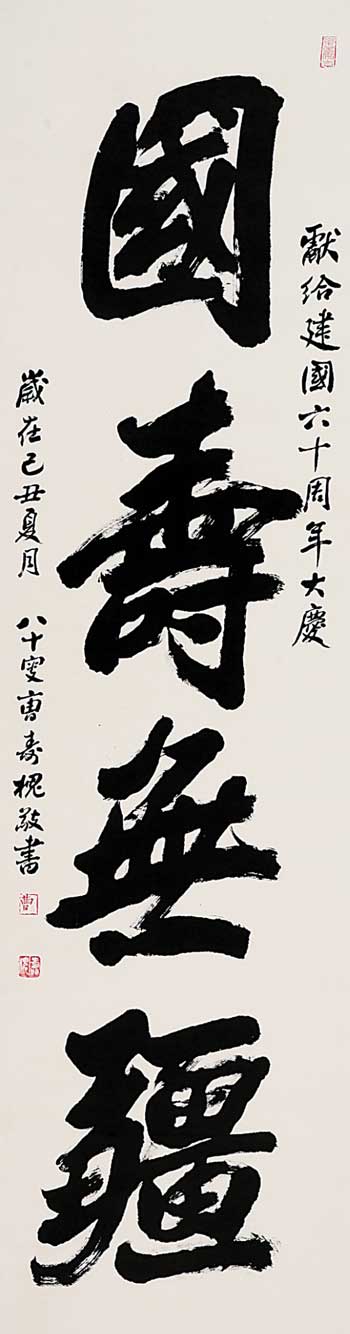 獻給建國六十周年大慶
國壽無疆
歲在己丑夏月 八十叟曹壽槐敬書